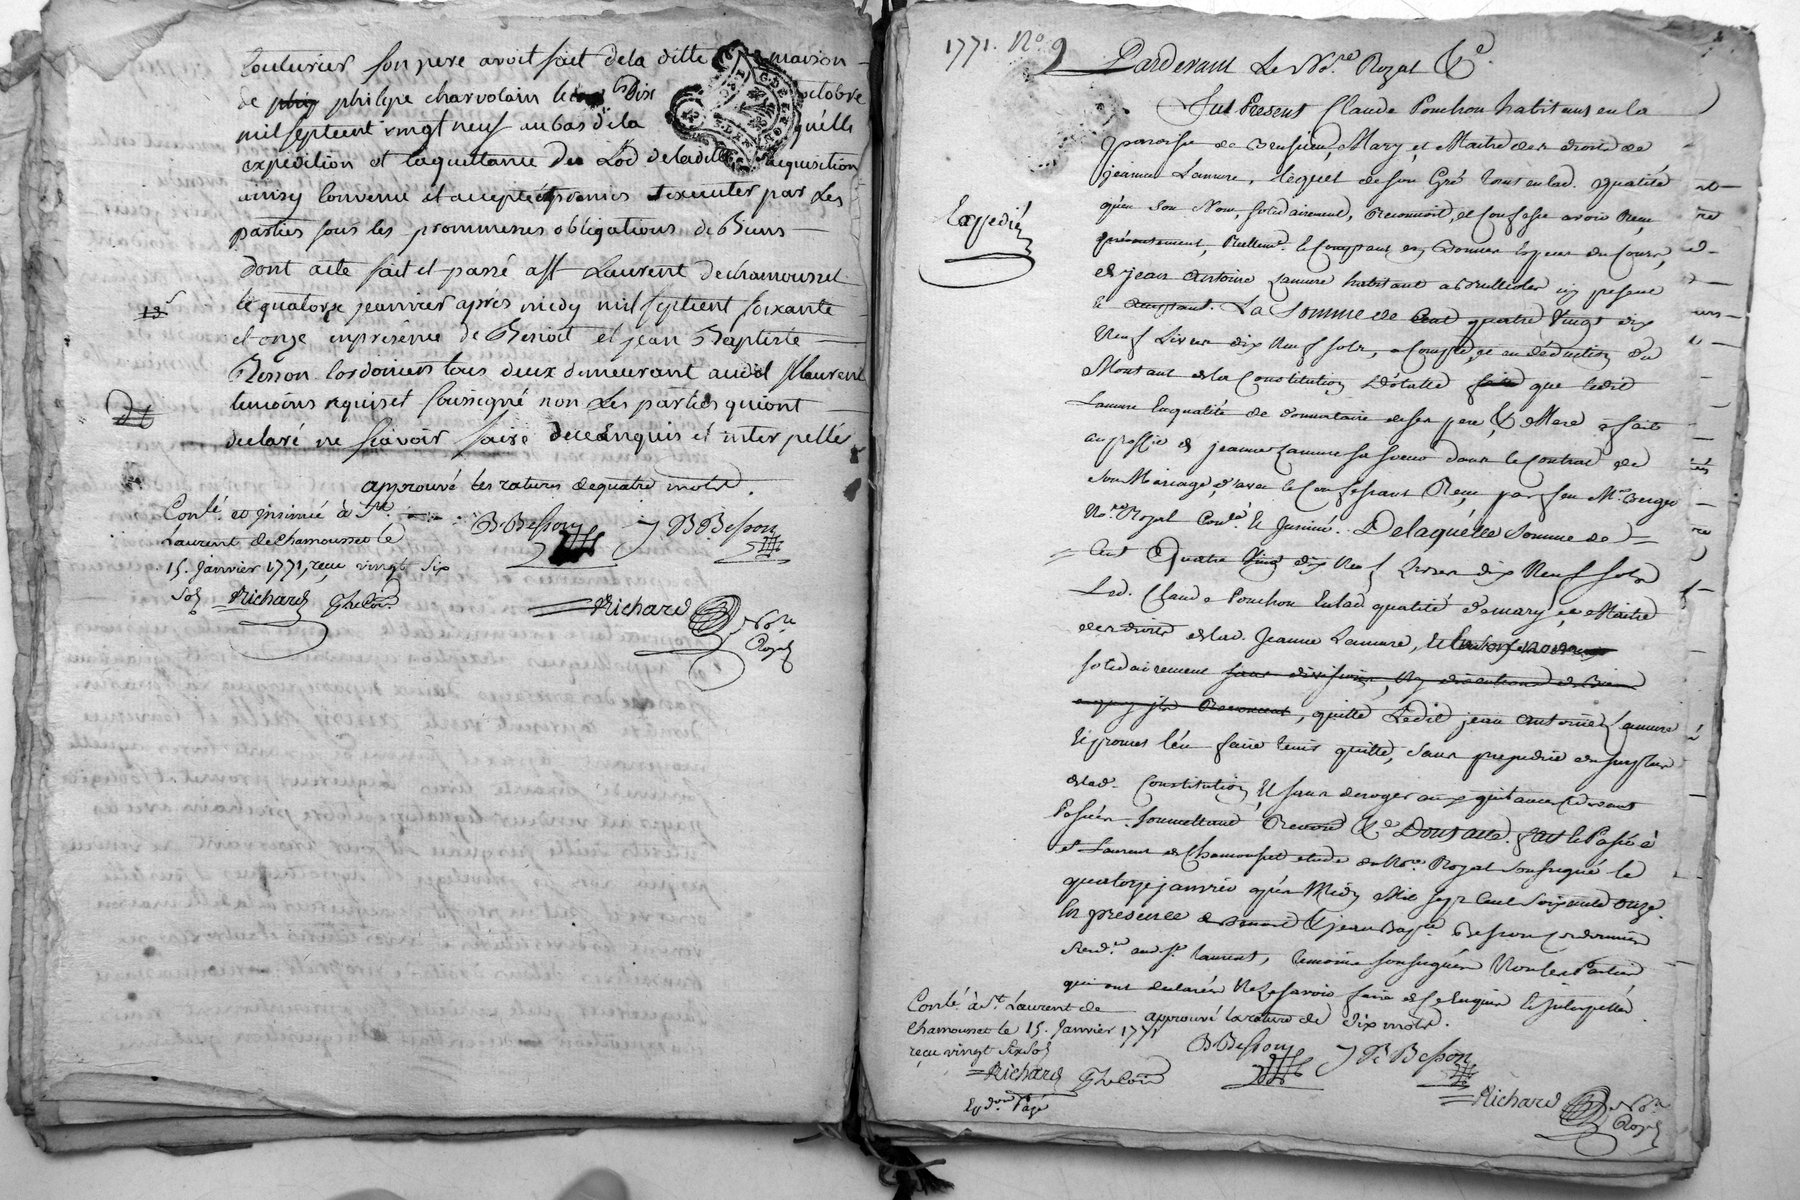 Couturier son pere avoit fait de la ditte maison
de philipe charvolain le dix octobre
mil septcent vingt neuf au bas de la quelle
expedition et la quittance du Lod de la ditte acquisition
ainsy convenu et accepté promis executer par Les
parties sous les prommesses obligations de Biens
dont acte fait et passé a St Laurent de chamousset
le quatorze jeanvier après midy mil septcent soixante
et onze en presence de Benoit et jean Baptiste
Besson cordoniers tous deux demeurant audit St Laurent
temoins requis et soussigné non Les parties qui ont
declaré ne sçavoir faire de ce enquis et interpellé
approuvé les ratures de quatre mots.
Conlé. et insinué à St.
Laurent de Chamousset le
15. Janvier 1771, reçu vingt six
sols Richard
B. Besson J B. Besson
Richard No.re Royal
1771. No. 9
Pardevant Le No.re Royal &c.
Expedié
Fut Present Claude Ponchon habitant en la
paroisse de Mary, et Maitre des droits de
jeanne Lamure, lequel de son Gré tout en lad. qualité
qu'en son Nom, solidairement, Reconnoit, et Confesse avoir Reçu
présentement, Réellem.t le Comptant en bonnes Especes du Cours,
de jean Antoine Lamure habitant a icy present
et acceptant. La Somme de Cent quatre Vingt dix
Neuf Livres dix Neuf sols, a Compte, et en déduction, du
Montant de la Constitution Dotalle que ledit
Lamure En qualité de donnataire de ses pere, & Mere a fait
au proffit de jeanne Lamure sa soeur dans le Contrat de
son Mariage, d'avec le Confessant Reçu par feu Me.
No.re Royal Conlé. & Insinué. De laquelle Somme de
Cent Quatre Vingt dix Neuf Livres dix Neuf sols
Led. Claude Ponchon En lad. qualité de mary, et Maitre
des droits de lad. Jeanne Lamure,
solidairement sans division, ny discution de Biens
Renoncent, quitte Ledit jean Antoine Lamure
et promet l'en faire tenir quitte, sans prejudice du surplus
de lad. Constitution, et sans deroger aux quittances cy devant
Passées. Soumettant Renonc. &c. Dont acte. fait et Passé à
St. Laurent de Chamousset etude du No.re Royal soussigné le
quatorze janvier après Midy Mil sept Cent Soixante onze.
En presence de Benoit et jean Bap.te Besson cordonniers
dem.t aud. St. Laurent, temoins soussignés Non les Parties
qui ont declarés Ne le sçavoir faire de ce Enquis et interpellé.
approuvé la rature de dix mots.
Conlé. à St. Laurent de
Chamousset le 15. Janvier 1771
reçu vingt six sols
Richard
B. Besson J B. Besson
Richard No.re Royal